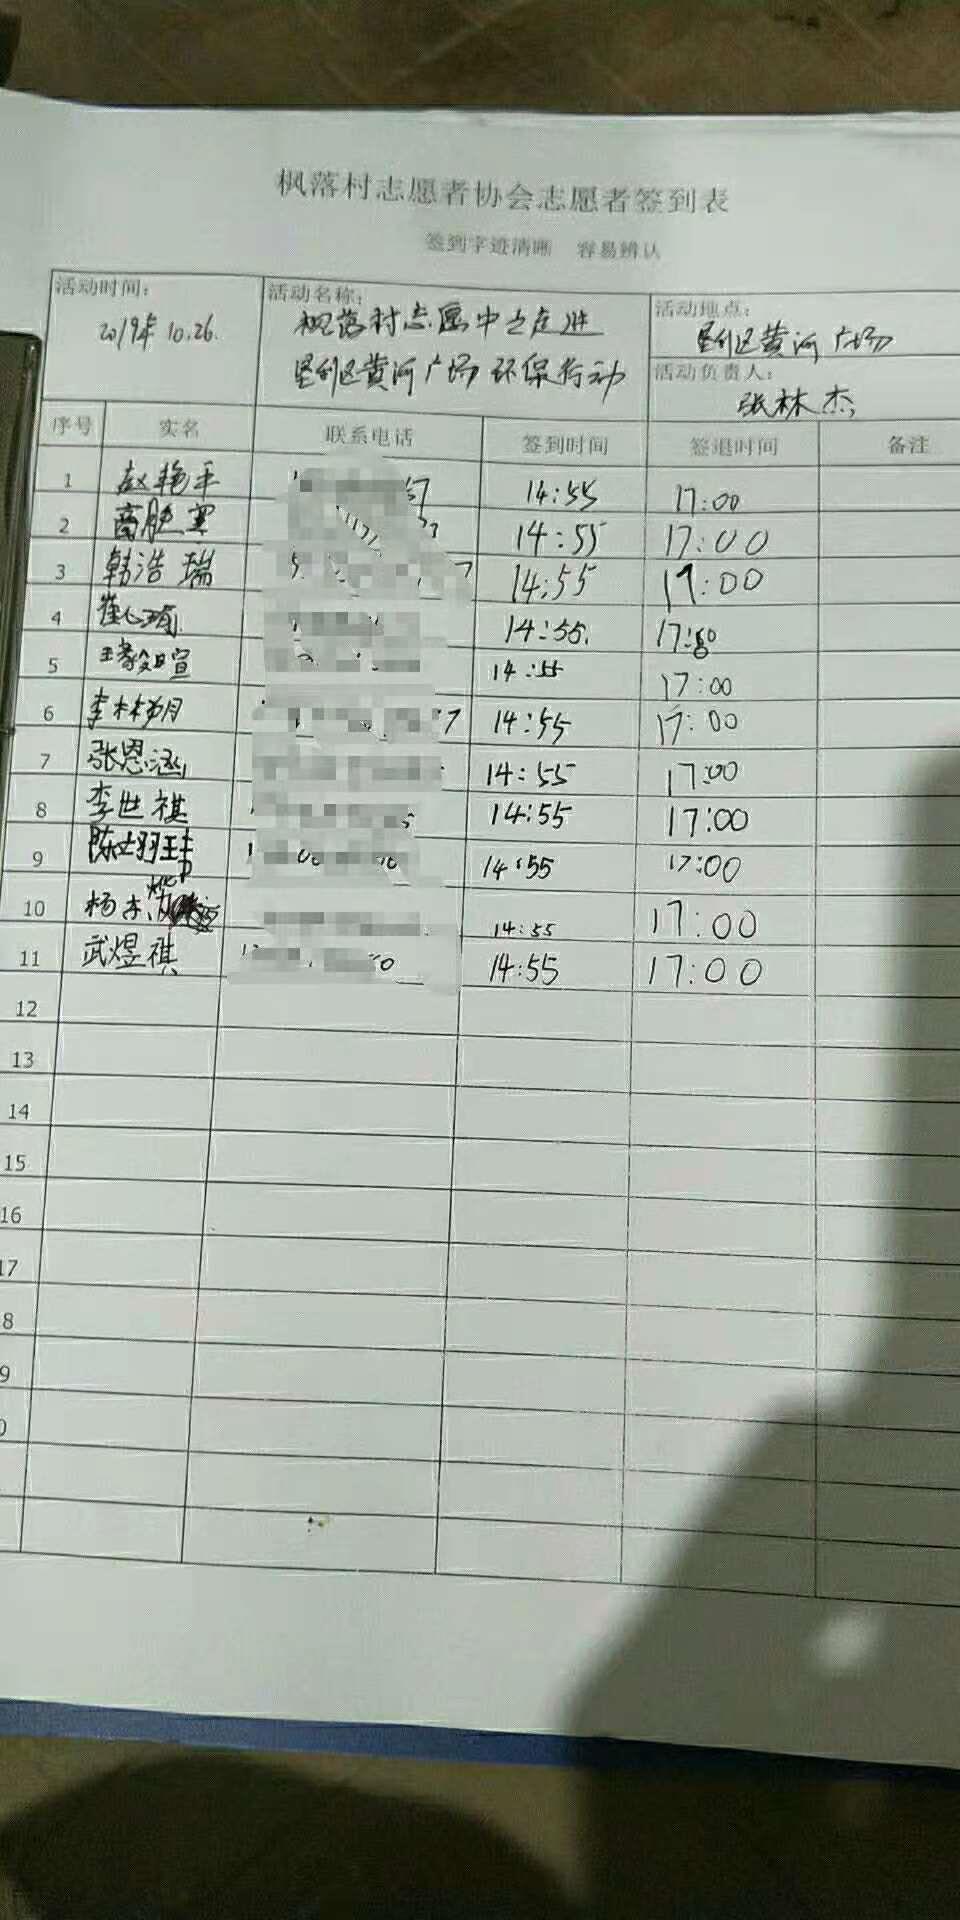 枫落村志愿者协会志愿者签到表
签到字迹清晰 容易辨认
活动时间: 活动名称: 活动地点:
2019年10.26. 枫落村志愿中心走进 垦利区黄河广场
垦利区黄河广场环保行动 活动负责人:
张林杰
序号 实名 联系电话 签到时间 签退时间 备注
1 赵艳平 14:55 17:00
2 14:55 17:00
3 韩浩瑞 14:55 17:00
4 14:55. 17:00
5 14:55 17:00
6 李林 月 7 14:55 17:00
7 张恩涵 14:55 17:00
8 李世祺 14:55 17:00
9 14:55 17:00
10 杨 14:55 17:00
11 武煜祺 14:55 17:00
12
13
14
15
16
17
8
9
0